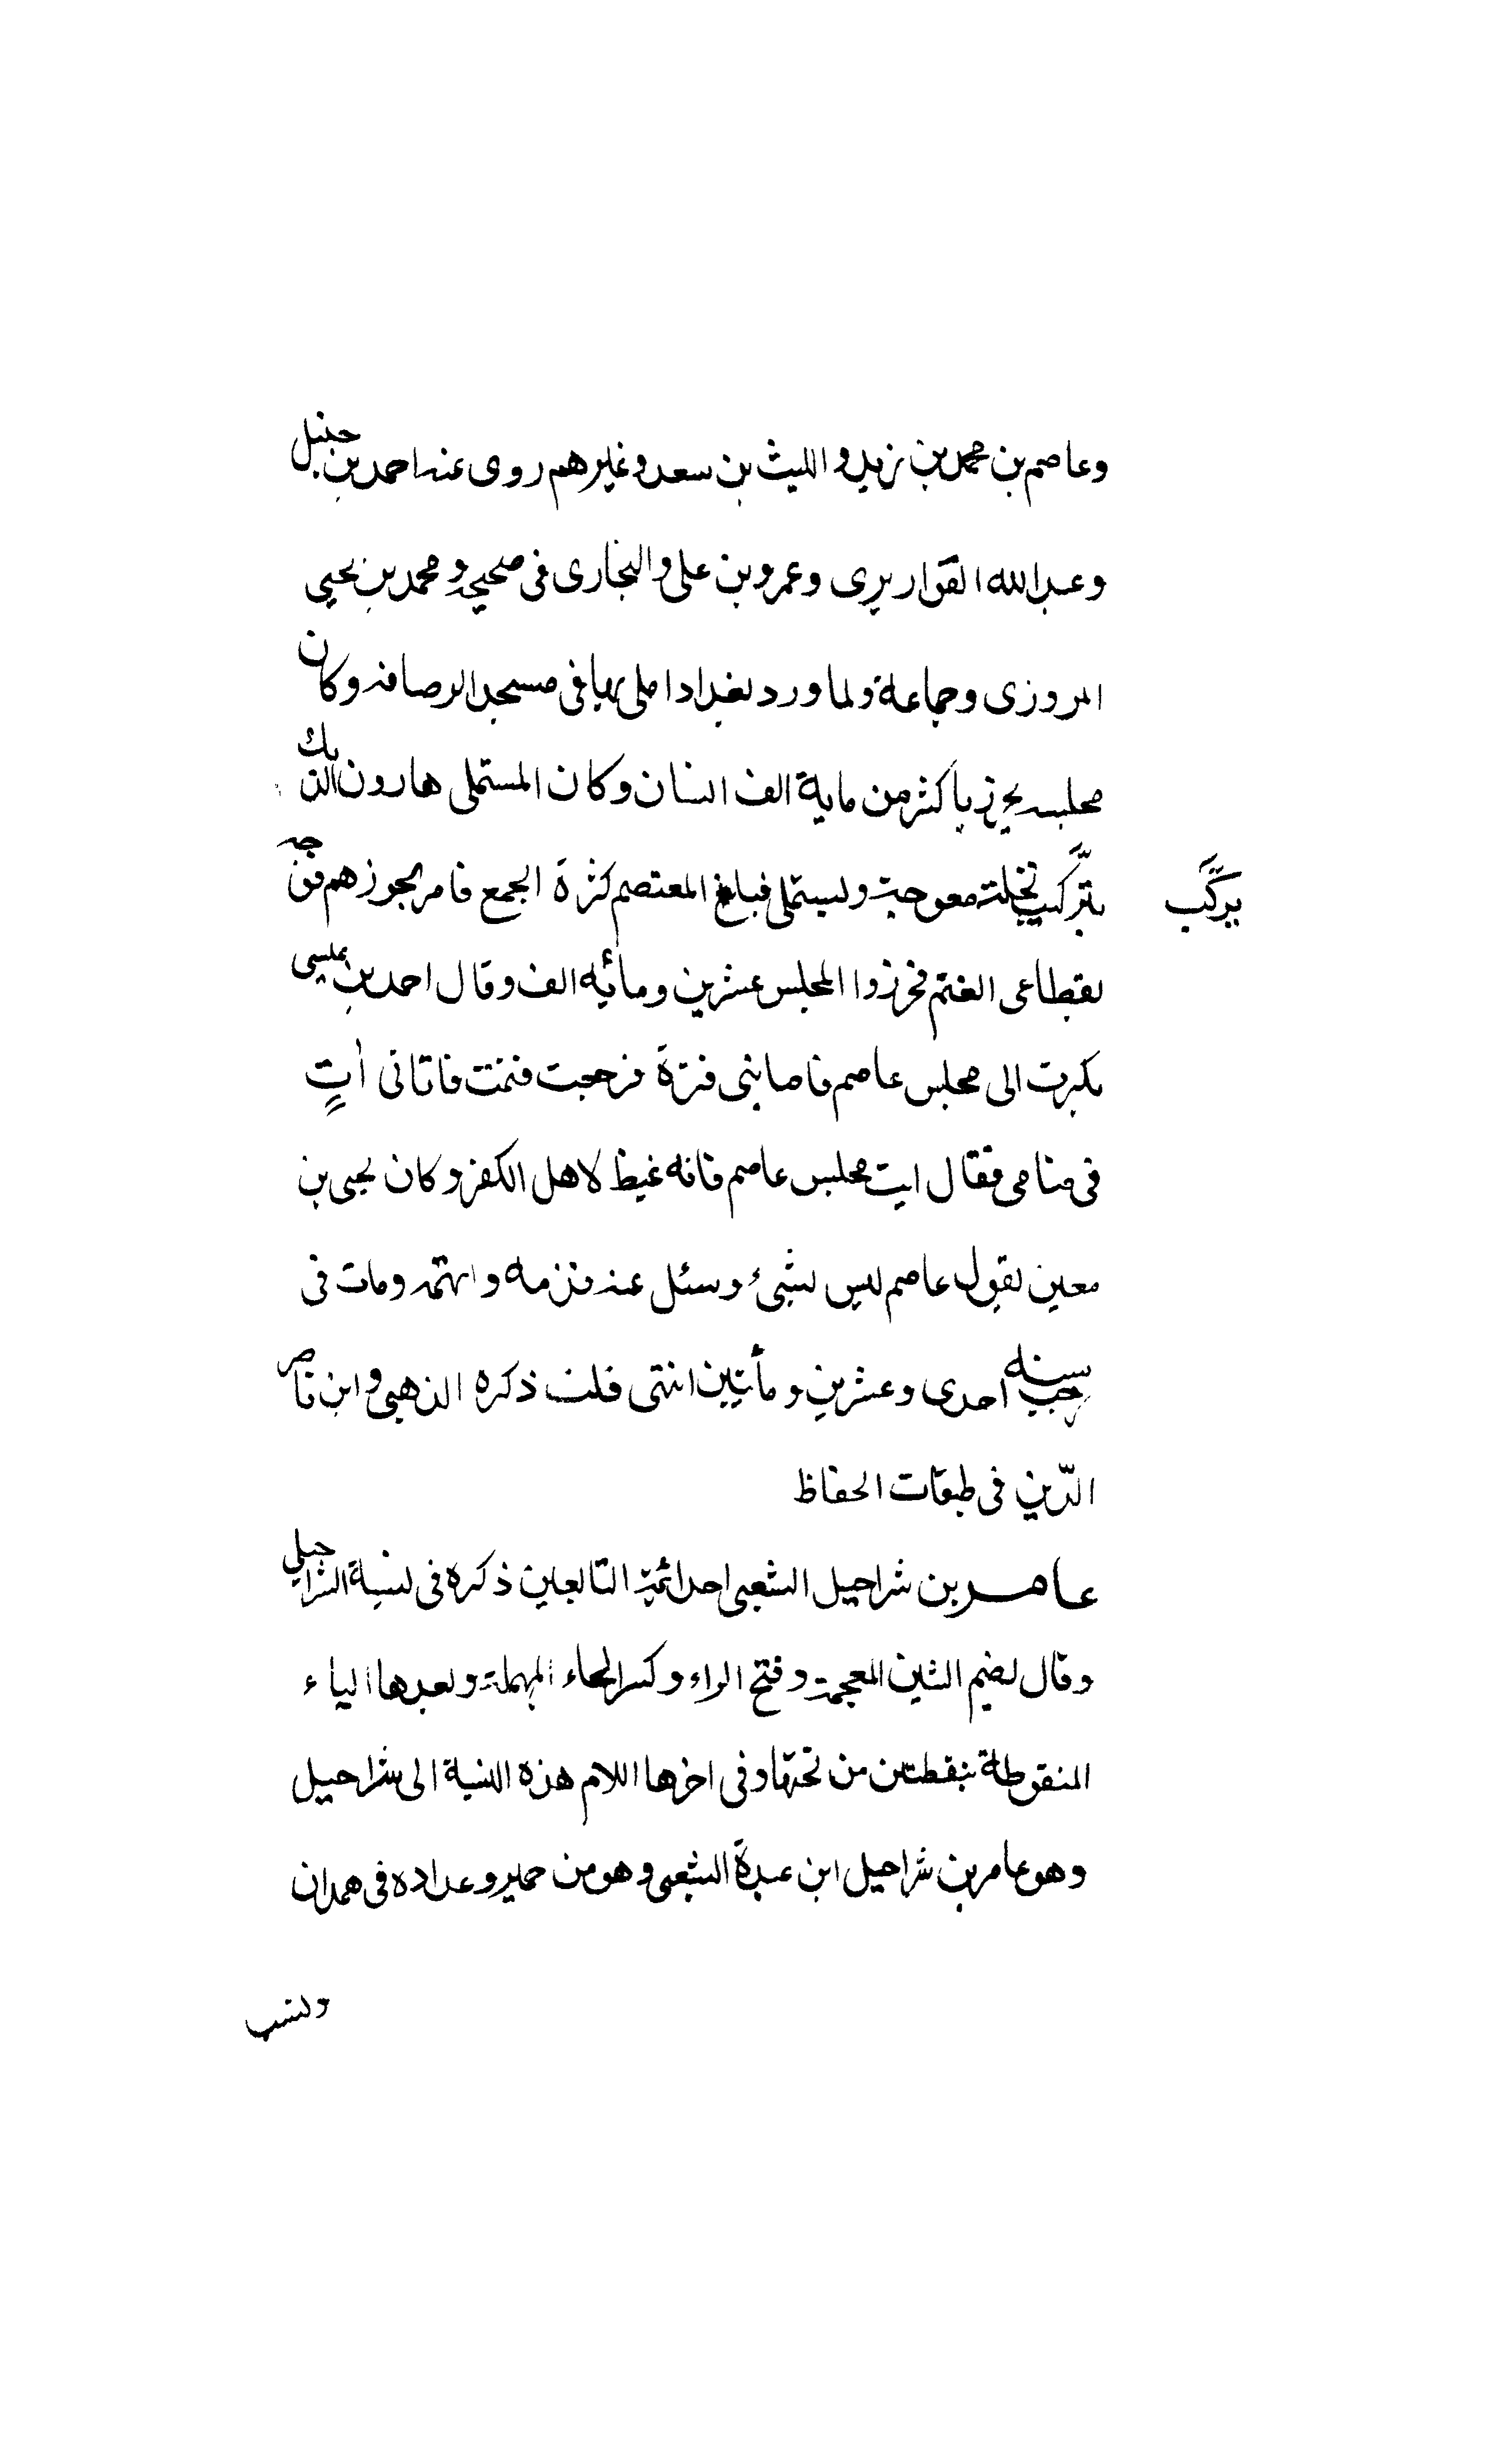 وعاصم بن محمد بن زيد والليث بن سعد وغيرهم روى عنه احمد بن حنبل
وعبدالله القواريرى وعمرو بن على والبخارى فى صحيحه ومحمد بن يحيى
المروزى وجماعة ولما ورد بغداد املى بها فى مسجد الرصافه وكان
مجلسه يحزر باكثر من ماية الف انسان وكان المستملى هارون الديك
يركب
يتركب نخلته معوجة ويستملى فبلغ المعتصم كثرة الجمع فامر بحوزهم فوجه
لقطاعى الغنم فحزروا المجلس عشرين ومائيه الف وقال احمد بن عيسى
بكرت الى مجلس عاصم فاصابنى فترة فرجعت فنمت فاتانى اٰتٍ
فى منامى فقال ايت مجلس عاصم فانه غيظ لاهل الكفر وكان يحيى بن
معين يقول عاصم ليس بشيئ وسئل عنه فذمه واتهمه ومات فى
رجب سنه احدى وعشرين ومأتيين انتهى قلت ذكره الذهبى وابن ناصر
الدّين فى طبقات الحفاظ
عامر بن شراحيل الشعبى احد ائمة التابعين ذكره فى نسبة الشراحيلى
وقال بضم الشين المعجمة وفتح الراء وكسر الحاء المهملة وبعدها الياء
المنقوطة بنقطتين من تحتها وفى اخرها اللام هذه النسبة الى شراحيل
وهو عامر بن شراحيل ابن عبدة الشعبى وهو من حمير وعداده فى همدان
ونسب